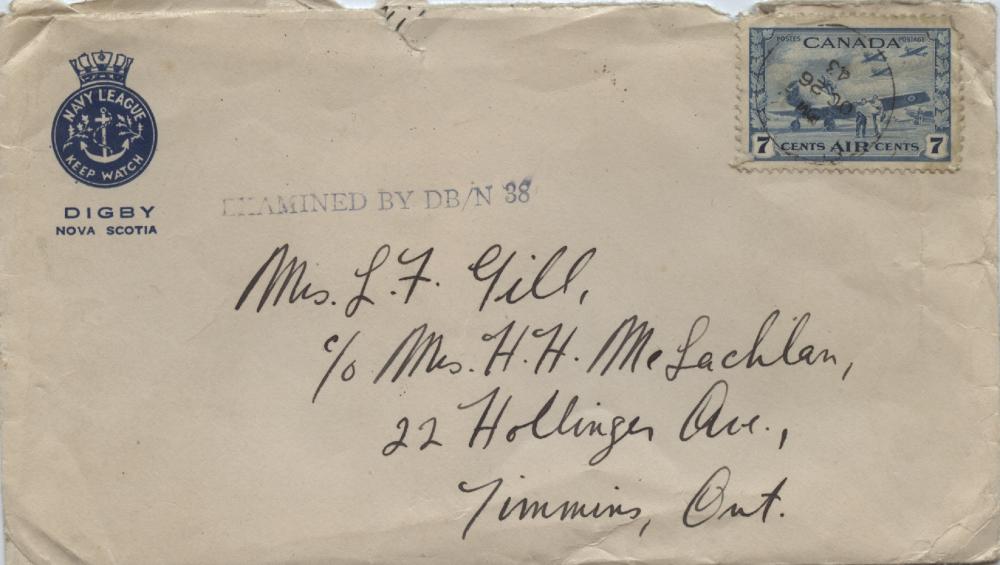 NAVY LEAGUE
KEEP WATCH
DIGBY
NOVA SCOTIA
POSTES CANADA POSTAGE
7 CENTS AIR CENTS 7
PM
OC 26
43
EXAMINED BY DB/N 38
Mrs. L. F. Gill,
c/o Mrs. H. H. McLachlan,
22 Hollinger Ave.,
Timmins, Ont.